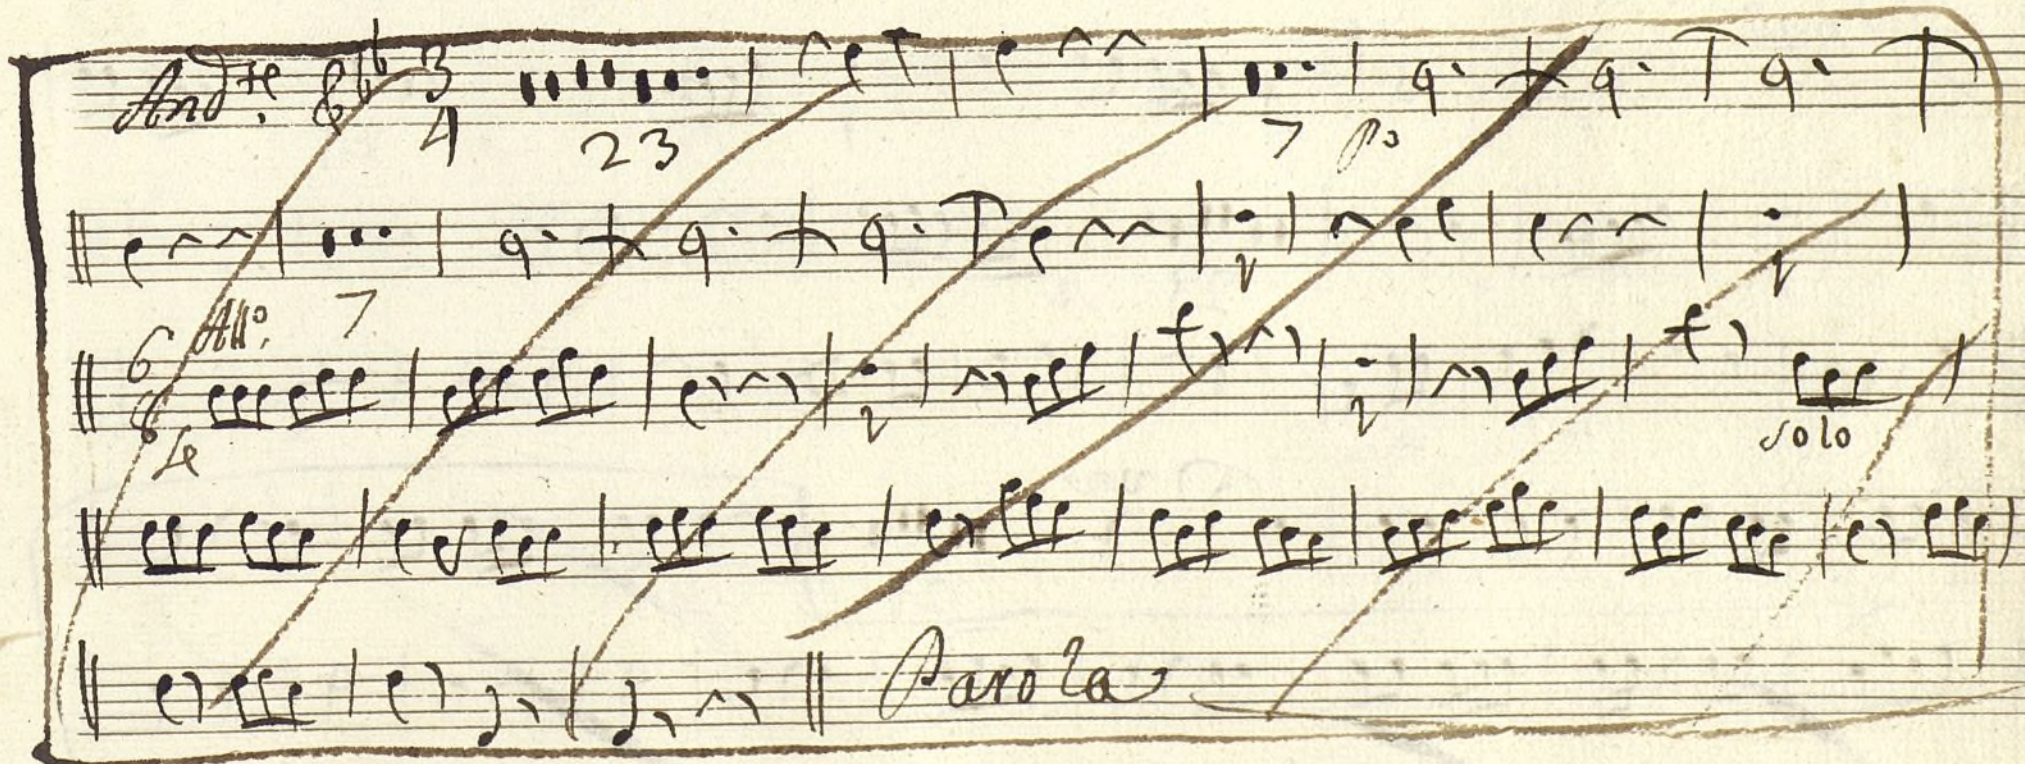 And.te 3 4 23 7 po
7
All.o 6 8 solo
Parola